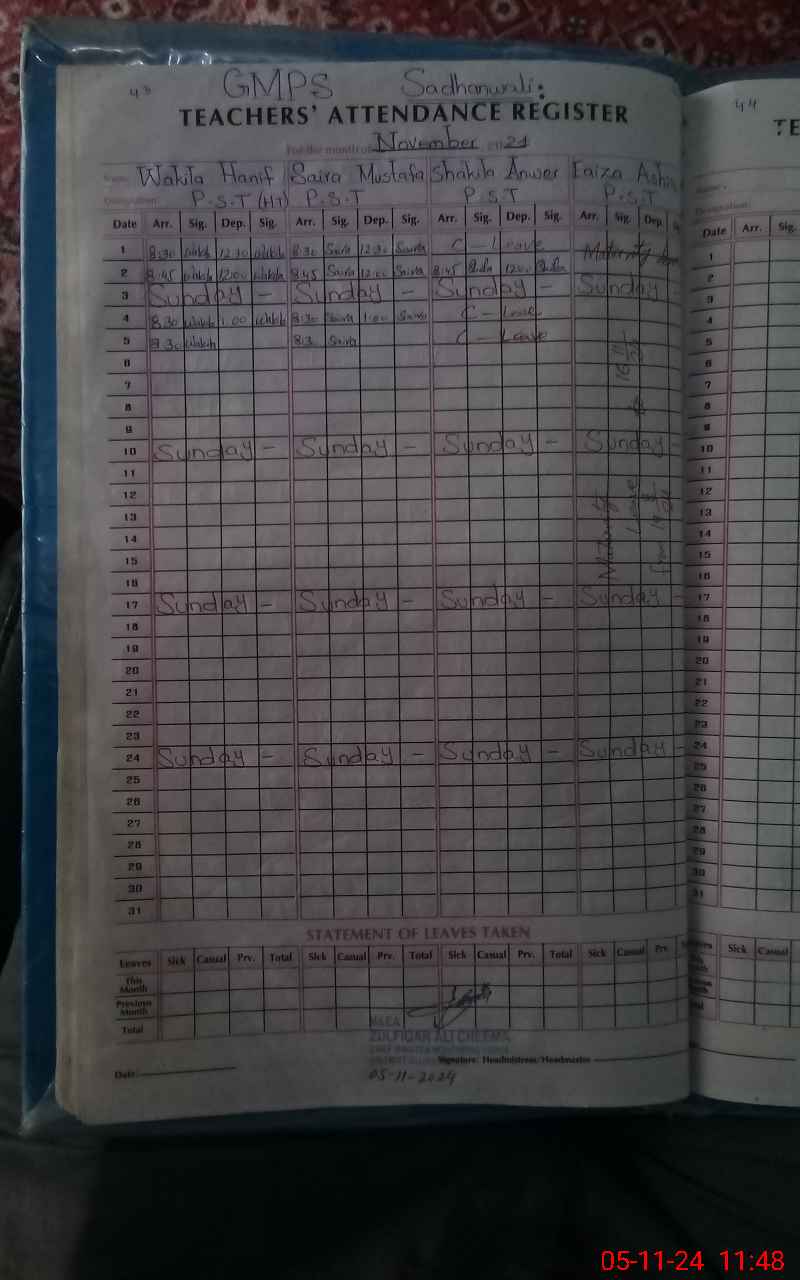 43 GMPS Sadhanwali: 44
TEACHERS' ATTENDANCE REGISTER TE
For the month of November 24
Name: Wakila Hanif Saira Mustafa Shakila Anwer Faiza Name:
Designation: P.S.T (HT) P.S.T P.S.T P.S.T Designation:
Date Arr. Sig. Dep. Sig. Arr. Sig. Dep. Sig. Arr. Sig. Dep. Sig. Arr. Sig. Dep. Date Arr. Sig.
1 8:30 Wakila 12:30 Wakila 8:30 Saira 12:30 Saira C - Leave Maternity 1
2 8:45 Wakila 12:00 Wakila 8:45 Saira 12:00 Saira 8:45 12:00 2
3 Sunday - Sunday - Sunday - Sunday 3
4 8:30 Wakila 1:00 Wakila 8:30 Saira 1:00 Saira C - Leave 4
5 8:30 Wakila 8:3 Saira C - Leave 5
6 6
7 7
8 8
9 9
10 Sunday - Sunday - Sunday - Sunday - 10
11 11
12 12
13 13
14 14
15 Maternity Leave 15
16 16
17 Sunday - Sunday - Sunday - Sunday - 17
18 18
19 19
20 20
21 21
22 22
23 23
24 Sunday - Sunday - Sunday - Sunday - 24
25 25
26 26
27 27
28 28
29 29
30 30
31 31
STATEMENT OF LEAVES TAKEN
Leaves Sick Casual Prv. Total Sick Casual Prv. Total Sick Casual Prv. Total Sick Casual Prv. Sick Casual
This Month
Previous Month
Total
M&EA
ZULFIQAR ALI CHEEMA
Signature: Headmistress/Headmaster
Date:
05-11-2024
05-11-24 11:48